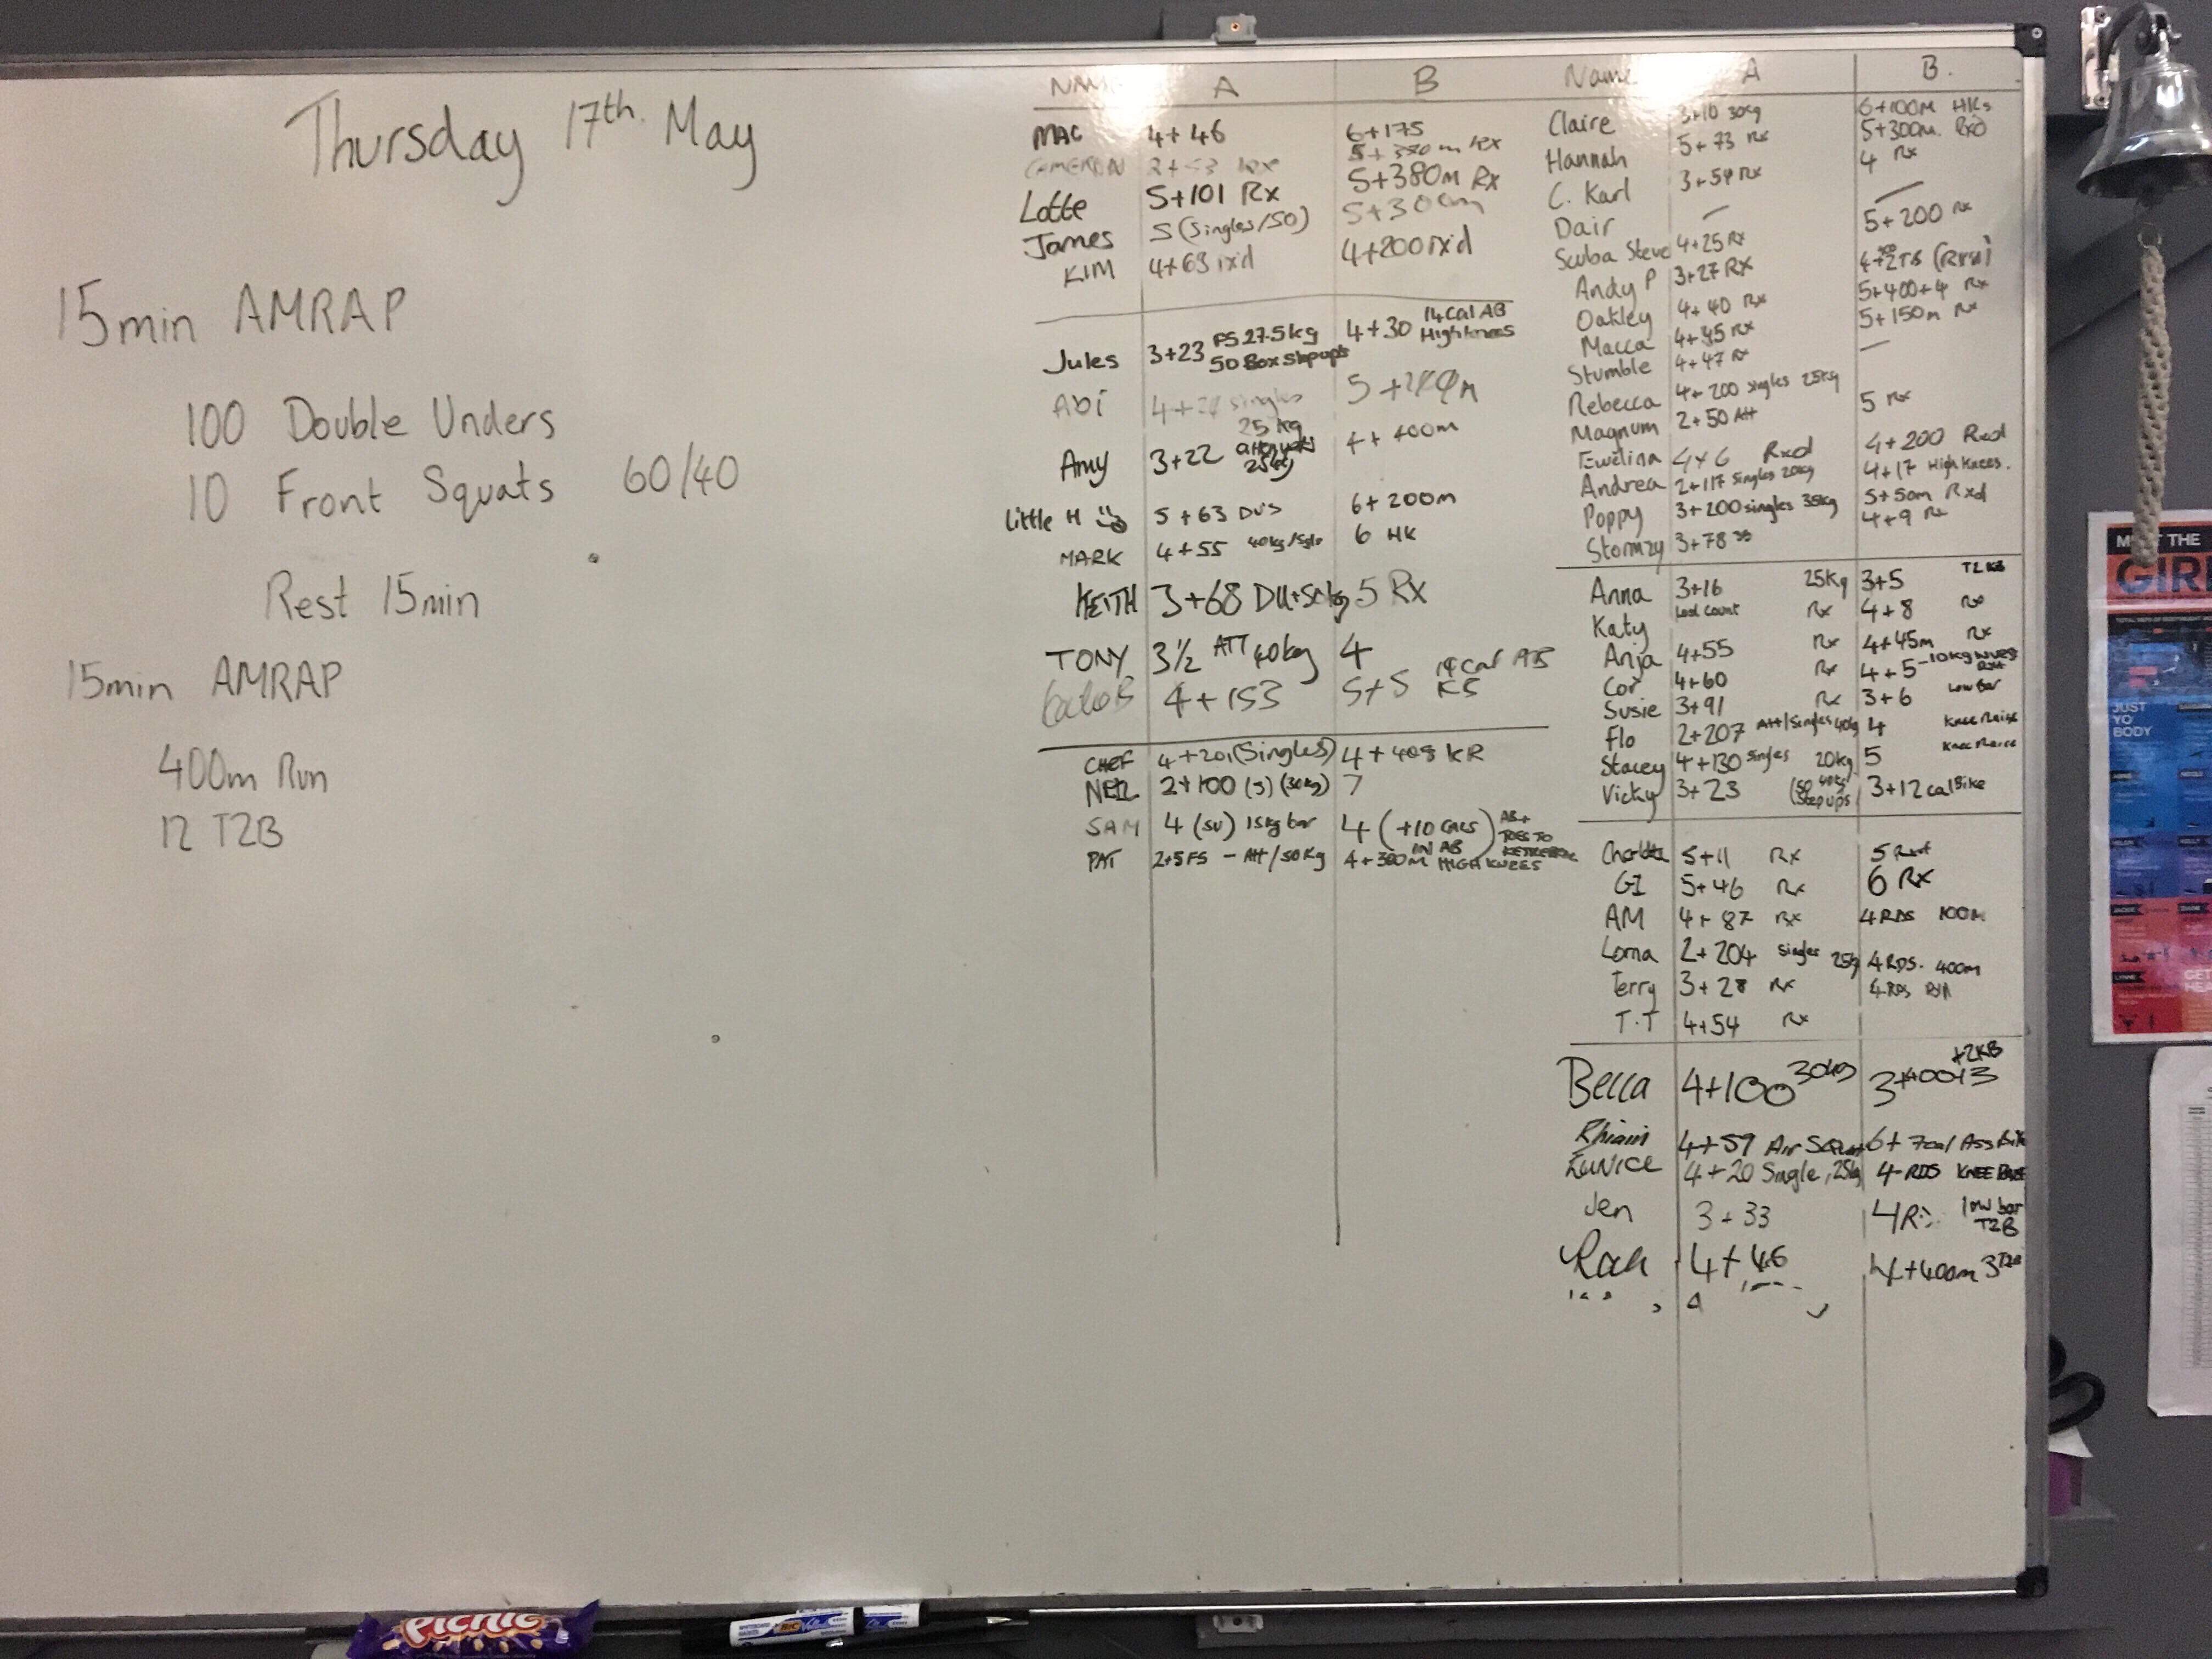 Thursday 17th May
15min AMRAP
100 Double Unders
10 Front Squats 60/40
Rest 15min
15min AMRAP
400m Run
12 T2B
NAME A B
MAC 4+46 6+175
CAMERON Rx Rx
Lotte 5+101 Rx 5+380m Rx
James 5 (Singles/50) 5+300m
KIM 4+63 rx'd 4+200 rx'd
Jules 3+23 FS 27.5kg 50 Box Step ups 4+30 14 Cal AB High knees
Abi 4+ singles 25kg 5+
Amy 3+22 4+400m
Little H 5+63 DU's 6+200m
MARK 4+55 6 HK
KEITH 3+68 DU+50kg 5 Rx
TONY 3½ ATT 40kg 4
4+153 5+5 14 Cal AB
CHEF 4+201 (Singles) 4+408 KR
NEIL 2+100 (S) (30kg) 7
SAM 4 (SU) 15kg bar 4 (+10 CALS IN AB) AB+ TOES TO
PAT 2+5FS - Att/50kg 4+300m HIGH KNEES
Name A B.
Claire 3+10 30kg 6+100m HKs
Hannah 5+73 Rx 5+300m. RxD
C. Karl 3+54 Rx 4 Rx
Dair — —
Scuba Steve 4+25 Rx 5+200 Rx
Andy P 3+27 RX
Oakley 4+40 Rx 5+400+4 Rx
Macca Rx 5+150m Rx
Stumble 4+47 Rx —
Rebecca 4+200 singles 25kg
Magnum 2+50 Att 5 Rx
Ewelina 4+6 Rxd 4+200 Rxd
Andrea 2+117 Singles 20kg 4+17 High Knees.
Poppy 3+200 singles 35kg 5+50m Rxd
Stormzy 3+78 4+9 Rx
Anna 3+16 25Kg 3+5 T2KB
Katy Lost Count Rx 4+8 Rx
Anja 4+55 Rx 4+45m Rx
Cor 4+60 Rx 4+5
Susie 3+91 Rx 3+6 Low Bar
Flo 2+207 Att/Singles 40kg 4 Knee Raise
Stacey 4+130 Singles 20kg 5 Knee Raise
Vicky 3+23 (50 Step ups 3+12 cal Bike
5+11 Rx 5
GI 5+46 Rx 6 Rx
AM 4+87 Rx 4 RDS 100M
Lorna 2+204 Singles 25kg 4 RDS. 400m
Terry 3+28 Rx 4 RDS
T.T 4+54 Rx
Becca 4+100 30kg 3+400+3 T2KB
4+59 Air Squat 6+ 7cal Ass Bike
Eunice 4+20 Single, 25kg 4 RDS KNEE
Jen 3+33 4 low bar T2B
4+46 4+400m 3 T2B
MEET THE
GIRL
JUST
YO
BODY
GET
HEA
PiCNiC
BIC